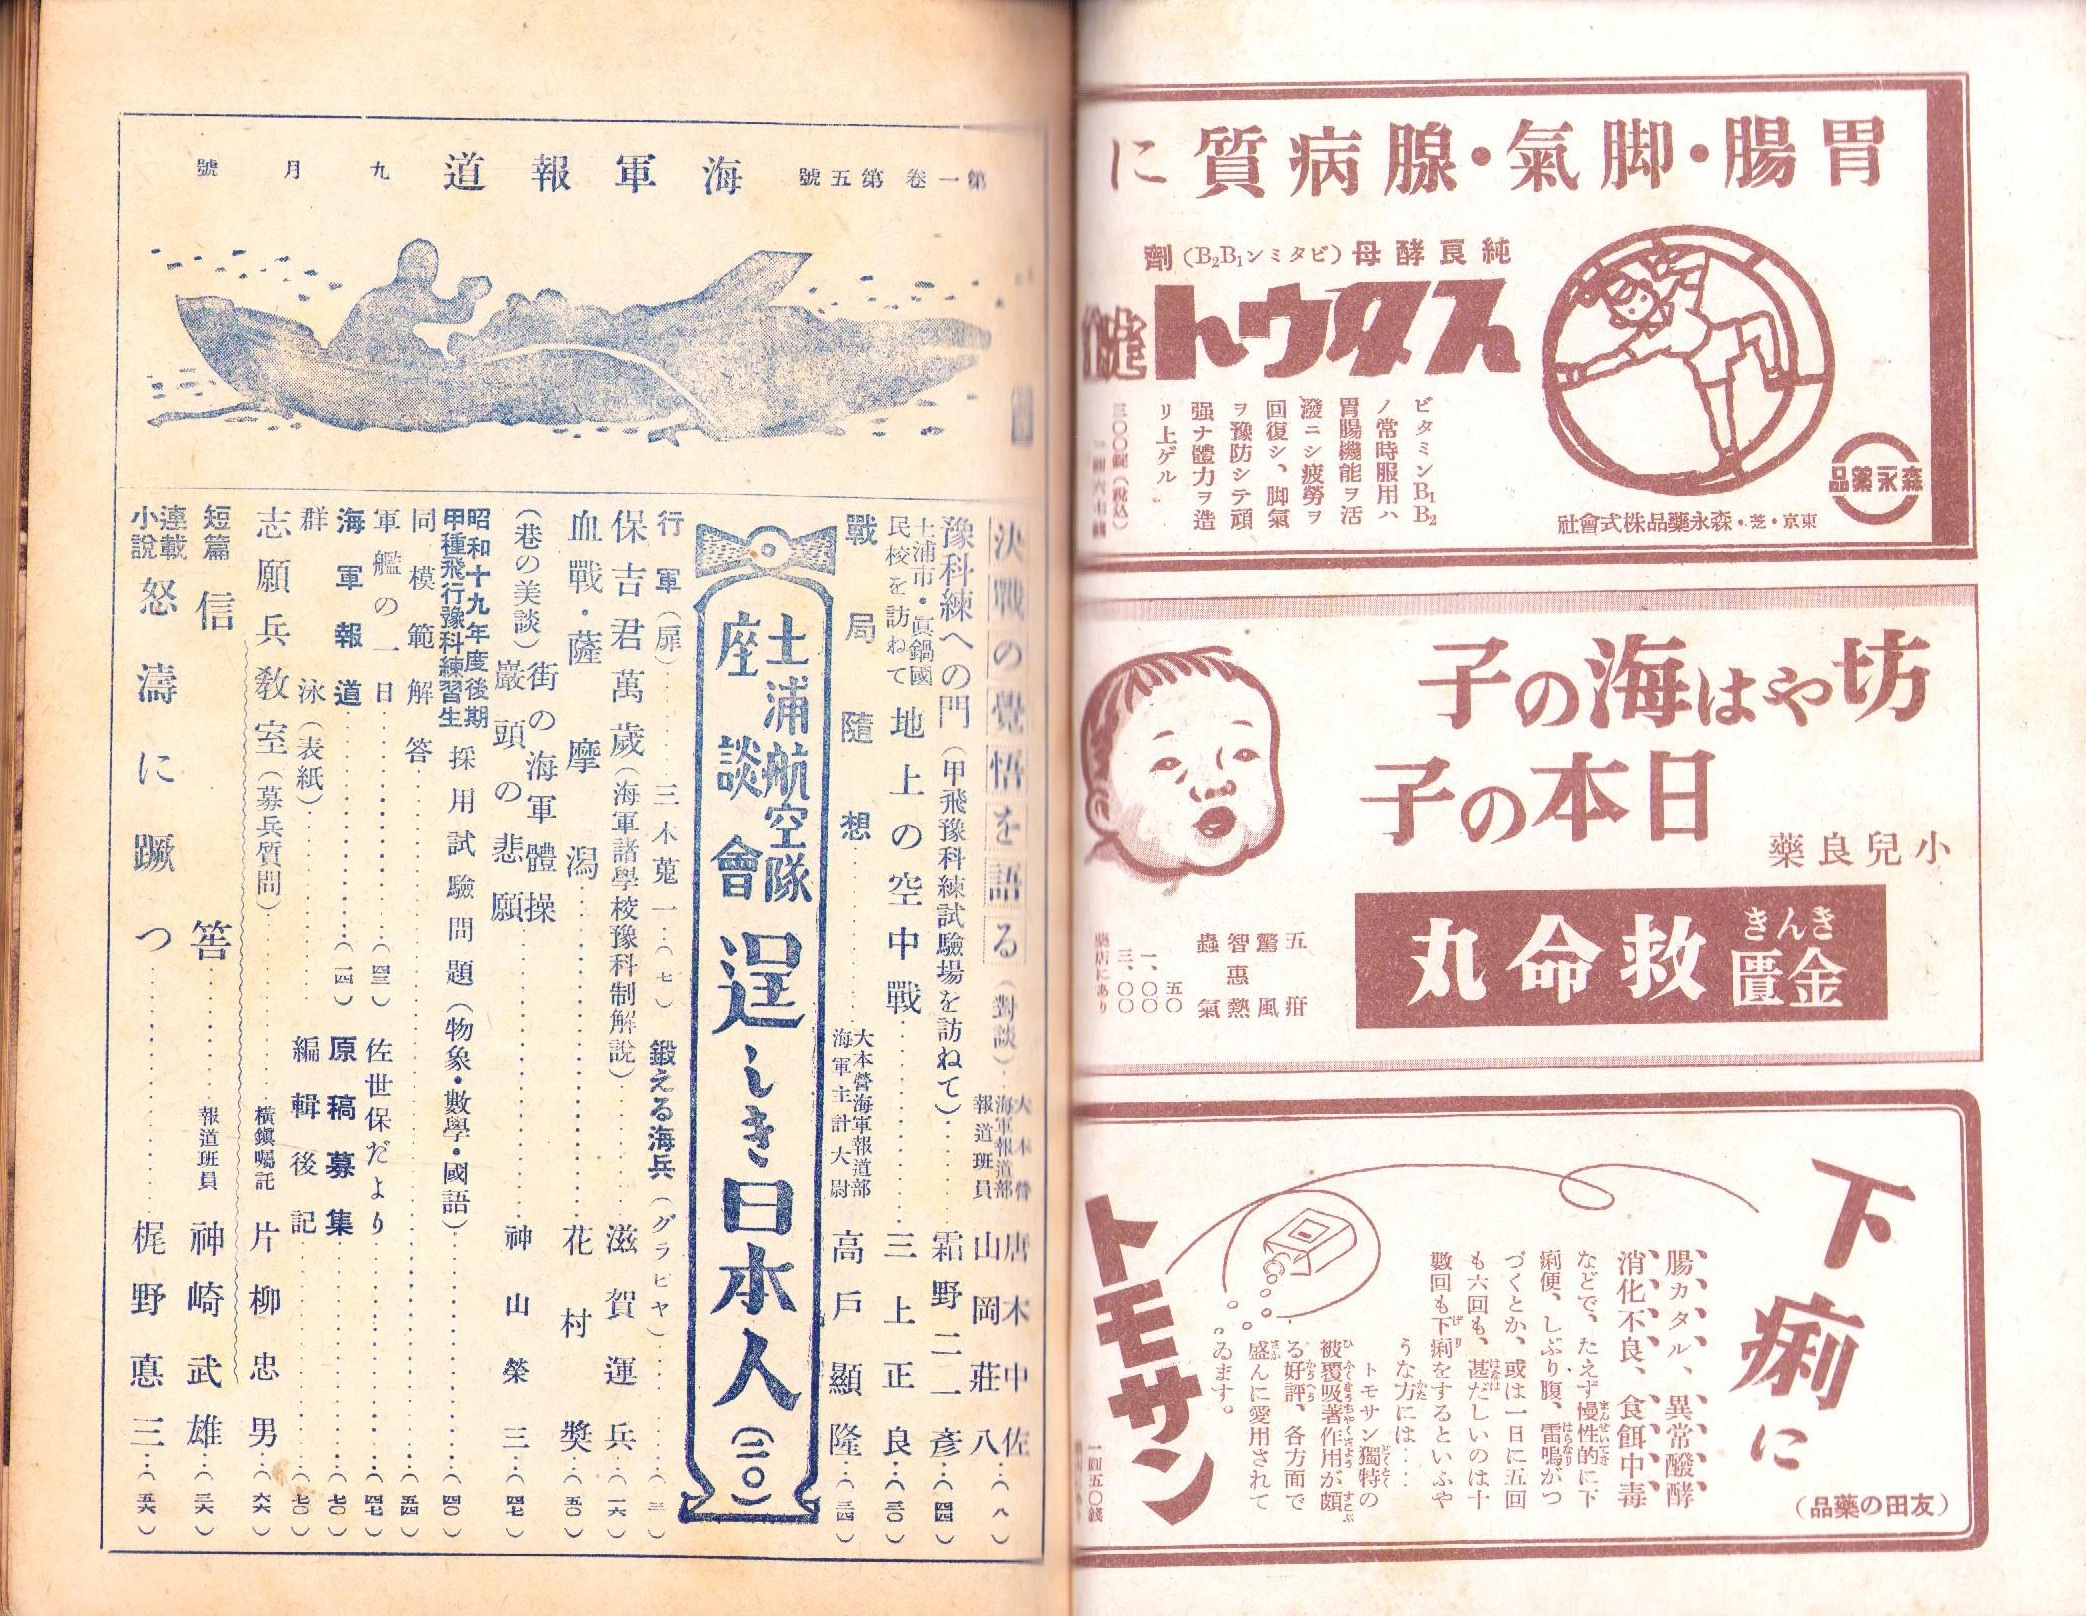 胃腸・脚氣・腺病質に
純良酵母(ビタミンB₁B₂)劑
スタウト
ビタミンB₁B₂
ノ常時服用ハ
胃腸機能ヲ活
潑ニシ疲勞ヲ
回復シ、脚氣
ヲ豫防シテ頑
强ナ體力ヲ造
リ上ゲル
三〇〇錠(税込)
森永藥品
東京・芝・森永藥品株式會社
坊やは海の子
日本の子
小兒良藥
金匱救命丸
きんき
五疳
驚風
智惠熱
蟲氣
五〇
一、〇〇
三、〇〇
藥店にあり
下痢に
(友田の藥品)
腸カタル、異常醱酵
消化不良、食餌中毒
などで、たえず慢性的に下
痢便、しぶり腹、雷鳴がつ
づくとか、或は一日に五回
も六回も、甚だしいのは十
數回も下痢をするといふや
うな方には‥‥
トモサン獨特の
被覆吸著作用が頗
る好評、各方面で
盛んに愛用されて
ゐます。
トモサン
一圓五〇錢
第一卷 第五號 海軍報道 九月號
決戰の覺悟を語る(對談) 大本營海軍報道部 唐木中佐 報道班員 山岡莊八(八)
豫科練への門(甲飛豫科練試驗場を訪ねて) 霜野二一彥(四四)
土浦市・眞鍋國民校を訪ねて 地上の空中戰 三上正良(三〇)
戰局隨想 大本營海軍報道部 海軍主計大尉 高戶顯隆(三四)
土浦航空隊座談會 逞しき日本人(二〇)
行軍(扉) 三木蒐一(七) 鍛える海兵(グラビヤ)(三)
保吉君萬歲(海軍諸學校豫科制解說) 滋賀運兵(一六)
血戰・薩摩潟 花村奬(五〇)
(巷の美談) 街の海軍體操 巖頭の悲願 神山榮三(四七)
昭和十九年度後期甲種飛行豫科練習生 採用試驗問題(物象・數學・國語)(四〇)
同模範解答(五四)
軍艦の一日(四三) 佐世保だより(四七)
海軍報道(一四) 原稿募集(七〇)
群泳(表紙) 編輯後記(七〇)
志願兵敎室(募兵質問) 橫鎭囑託 片柳忠男(六六)
短篇 信答 報道班員 神崎武雄(三六)
連載小說 怒濤に蹶つ 梶野悳三(五六)